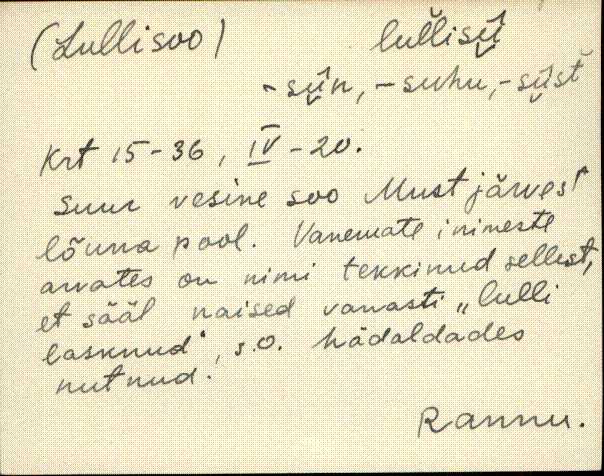 (Lullisoo) lullisü̬
-sü̬n, -suhu, -sü̬st
Krt 15-36, IV-20.
Suur vesine soo Mustjärvest
lõuna pool. Vanemate inimeste
arvates on nimi tekkinud sellest,
et sääl naised vanasti „lulli
lasknud", s.o. hädaldades
nutnud.
Rannu.